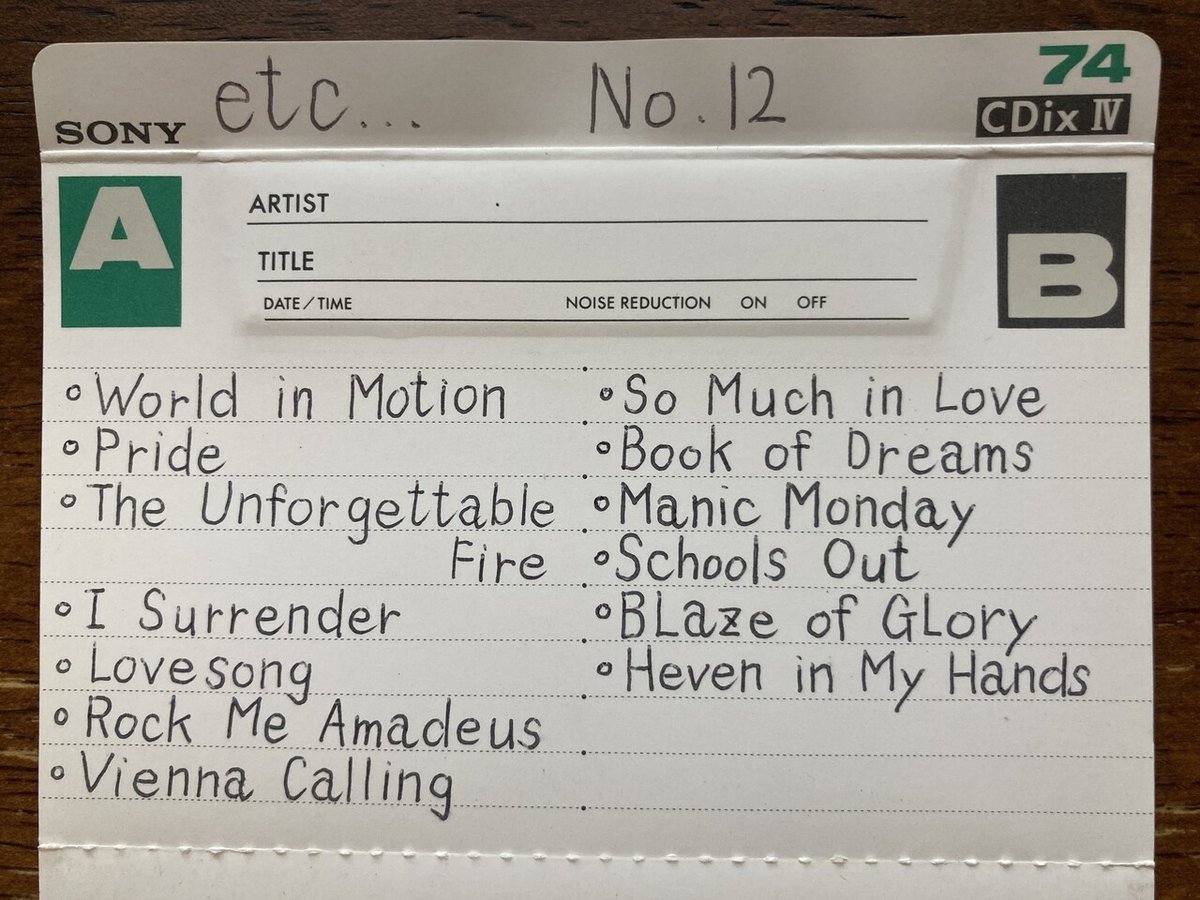 etc... No.12
74
SONY
CDix Ⅳ
A
B
ARTIST
TITLE
DATE/TIME NOISE REDUCTION ON OFF
World in Motion
Pride
The Unforgettable
Fire
I Surrender
Lovesong
Rock Me Amadeus
Vienna Calling
So Much in Love
Book of Dreams
Manic Monday
Schools Out
BLaze of GLory
Heven in My Hands